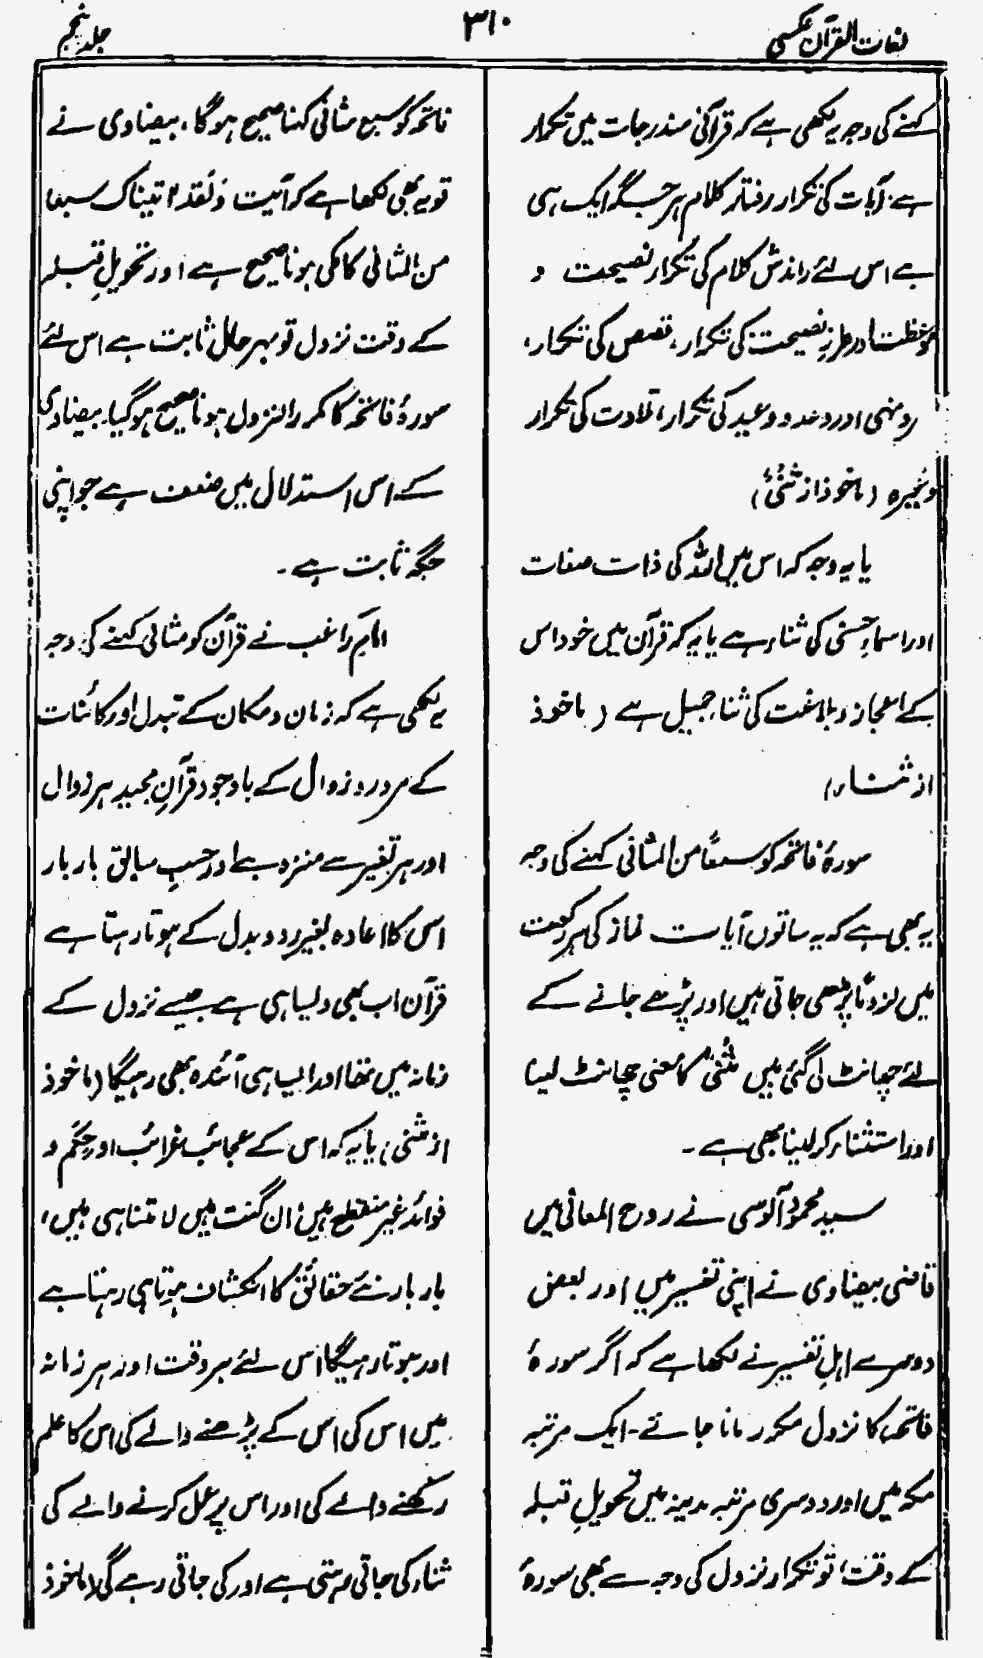 لغات القرآن عکسی
۳۱۰
جلد پنجم
کہنے کی وجہ یہ لکھی ہے کہ قرآنی مندرجات میں تکرار
ہے، آیات کی تکرار رفتار کلام ہر جگہ ایک ہی
ہے اس لئے راندش کلام کی تکرار نصیحت و
موعظت اور طرزِ نصیحت کی تکرار، قصص کی تکرار،
رو نہی اور وعدہ و وعید کی تکرار، تلاوت کی تکرار
وغیرہ (ماخوذ از ثَنْیٌ)
یا یہ وجہ کہ اس میں اللہ کی ذات صفات
اور اسماءِ حسنیٰ کی ثناء ہے یا یہ کہ قرآن میں خود اس
کے اعجاز و بلاغت کی ثنا جمیل ہے (ماخوذ
از ثناء)
سورۂ فاتحہ کو سبعًا من المثانی کہنے کی وجہ
یہ بھی ہے کہ یہ ساتوں آیات نماز کی ہر رکعت
میں لزومًا پڑھی جاتی ہیں اور پڑھے جانے کے
لئے چھانٹ لی گئی ہیں ثَنْیٌ کا معنی چھانٹ لینا
اور استثناء کر لینا بھی ہے۔
سید محمود آلوسی نے روح المعانی میں
قاضی بیضاوی نے اپنی تفسیر میں اور بعض
دوسرے اہلِ تفسیر نے لکھا ہے کہ اگر سورۂ
فاتحہ کا نزول مکرر مانا جائے۔ ایک مرتبہ
مکہ میں اور دوسری مرتبہ مدینہ میں تحویلِ قبلہ
کے وقت، تو تکرار نزول کی وجہ سے بھی سورۂ
فاتحہ کو سبع مثانی کہنا صحیح ہوگا، بیضاوی نے
تو یہ بھی لکھا ہے کہ آیت وَلَقَدْ اٰتیناک سبعا
من المثانی کا مکی ہونا صحیح ہے اور تحویلِ قبلہ
کے وقت نزول تو بہرحال ثابت ہے اس لئے
سورۂ فاتحہ کا مکرر النزول ہونا صحیح ہوگیا۔ بیضاوی
کے اس استدلال میں ضعف ہے جو اپنی
جگہ ثابت ہے۔
امام راغب نے قرآن کو مثانی کہنے کی وجہ
یہ لکھی ہے کہ زمان و مکان کے تبدل اور کائنات
کے مرور و زوال کے باوجود قرآنِ مجید ہر زوال
اور ہر تغیر سے منزہ ہے اور حسبِ سابق بار بار
اس کا اعادہ بغیر رد و بدل کے ہوتا رہتا ہے
قرآن اب بھی ویسا ہی ہے جیسے نزول کے
زمانہ میں تھا اور ایسا ہی آئندہ بھی رہیگا (ماخوذ
از ثنی) یا یہ کہ اس کے عجائب غرائب اور حِکَم و
فوائد غیر منقطع ہیں، ان گنت ہیں لا متناہی ہیں،
بار بار نئے حقائق کا انکشاف ہوتا ہی رہتا ہے
اور ہوتا رہیگا اس لئے ہر وقت اور ہر زمانہ
میں اس کی اس کے پڑھنے والے کی اس کا علم
رکھنے والے کی اور اس پر عمل کرنے والے کی
ثناء کی جاتی رہتی ہے اور کی جاتی رہے گی (ماخوذ